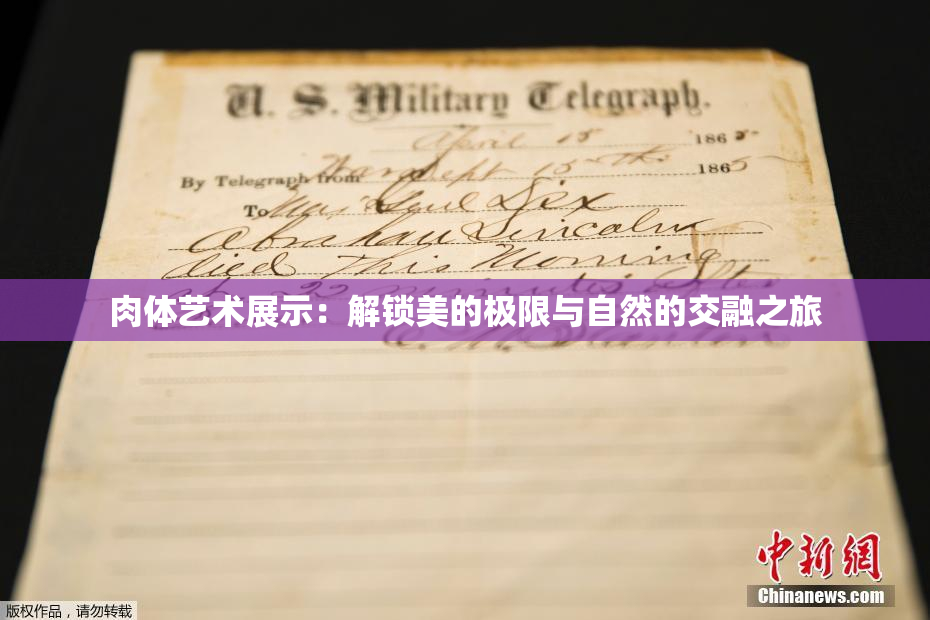 U. S. Military Telegraph.
April 15 1865
By Telegraph from War Dept 15th 1865
To Maj Genl Dix
Abraham Lincoln
died This Morning
22 minutes after
肉体艺术展示：解锁美的极限与自然的交融之旅
E. M. Stanton
中新網
Chinanews.com
版权作品，请勿转载